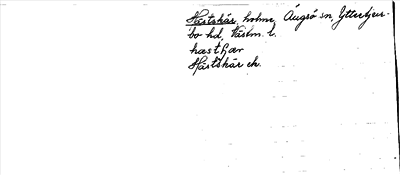 Hästskär, holme, Ängsö sn, Yttertjur-
bo hd, Västm. l.
hæstfær
Hästskär ek.